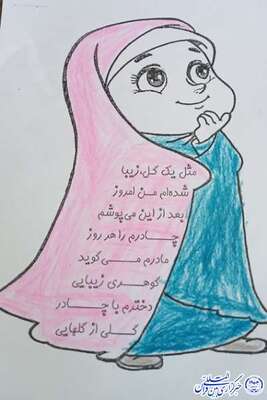 مثل یک گل، زیبا
شده‌ام من امروز
بعد از این می‌پوشم
چادرم را هر روز
مادرم می‌گوید
گوهری زیبایی
دخترم با چادر
گلی از گلهایی